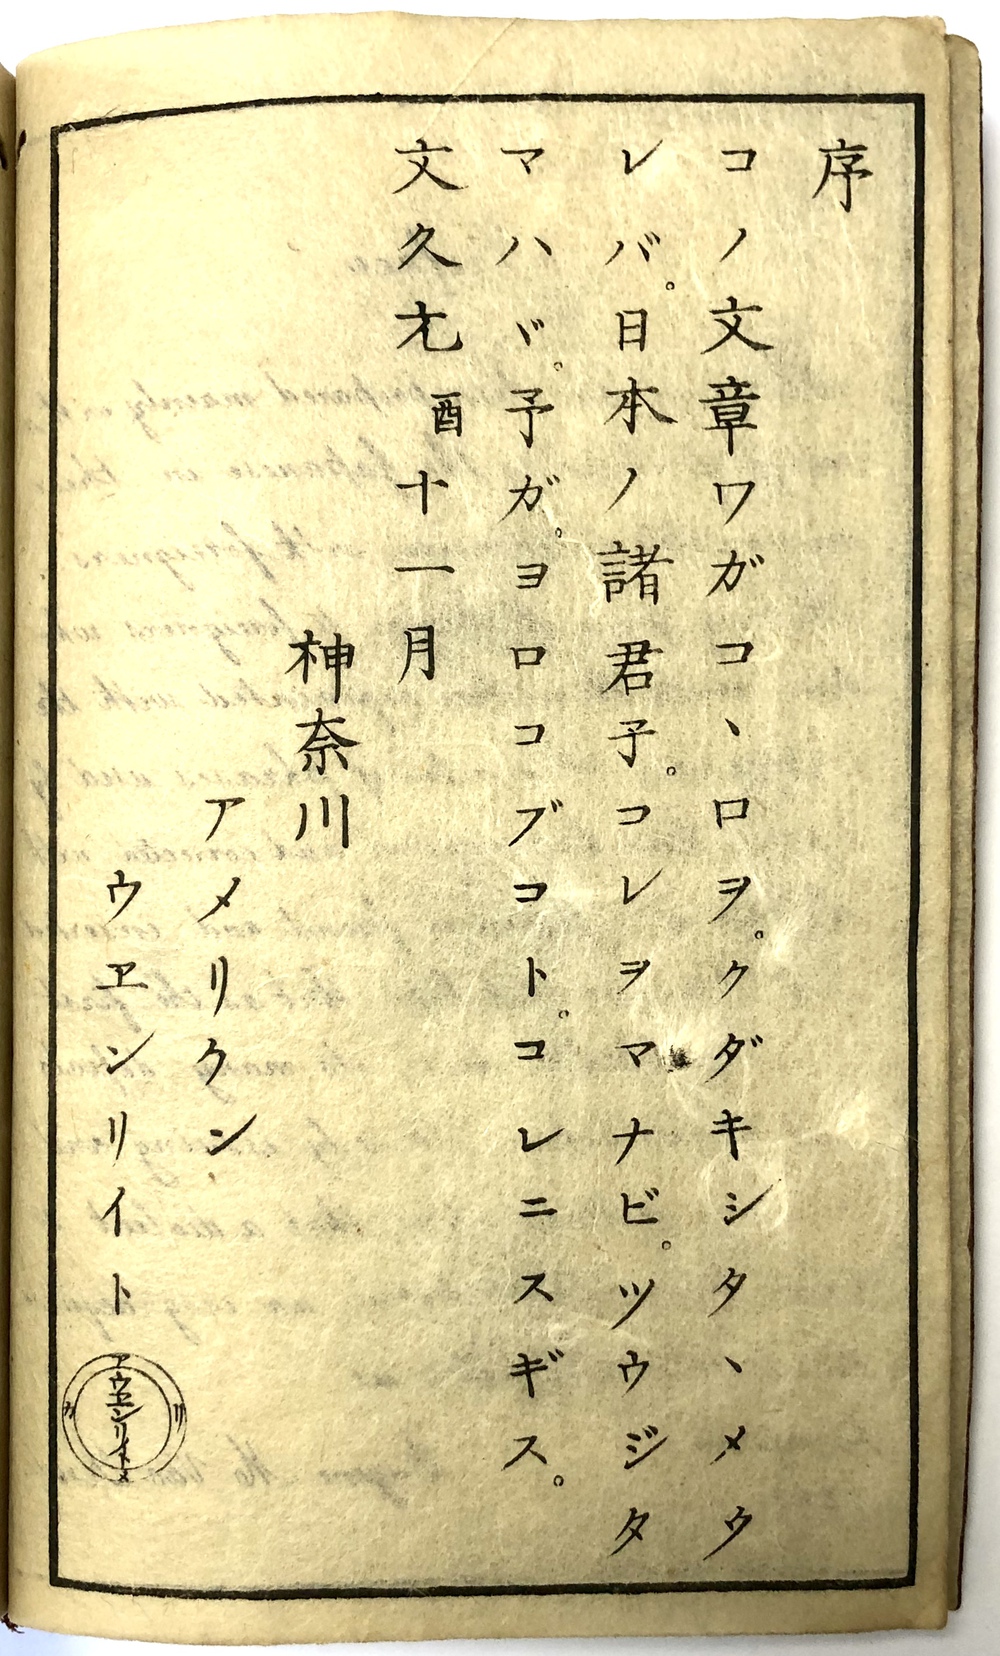 序
コノ文章ワガコヽロヲ。クダキシタヽメウ
レバ。日本ノ諸君子。コレヲマナビ。ツウジタ
マハヾ。予ガ。ヨロコブコト。コレニスギス。
文久元酉十一月
神奈川
アメリクン
ウヱンリイト
アメリカ
ウヱンリイト